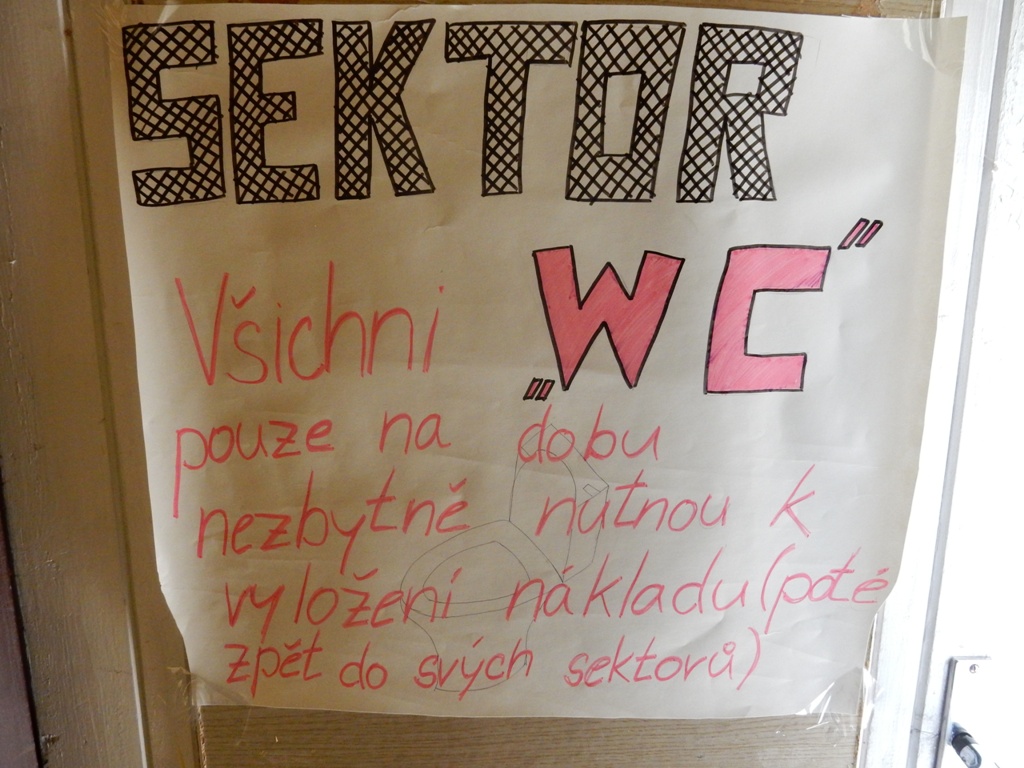 SEKTOR
„WC"
Všichni
pouze na dobu
nezbytně nutnou k
vyložení nákladu (poté
zpět do svých sektorů)